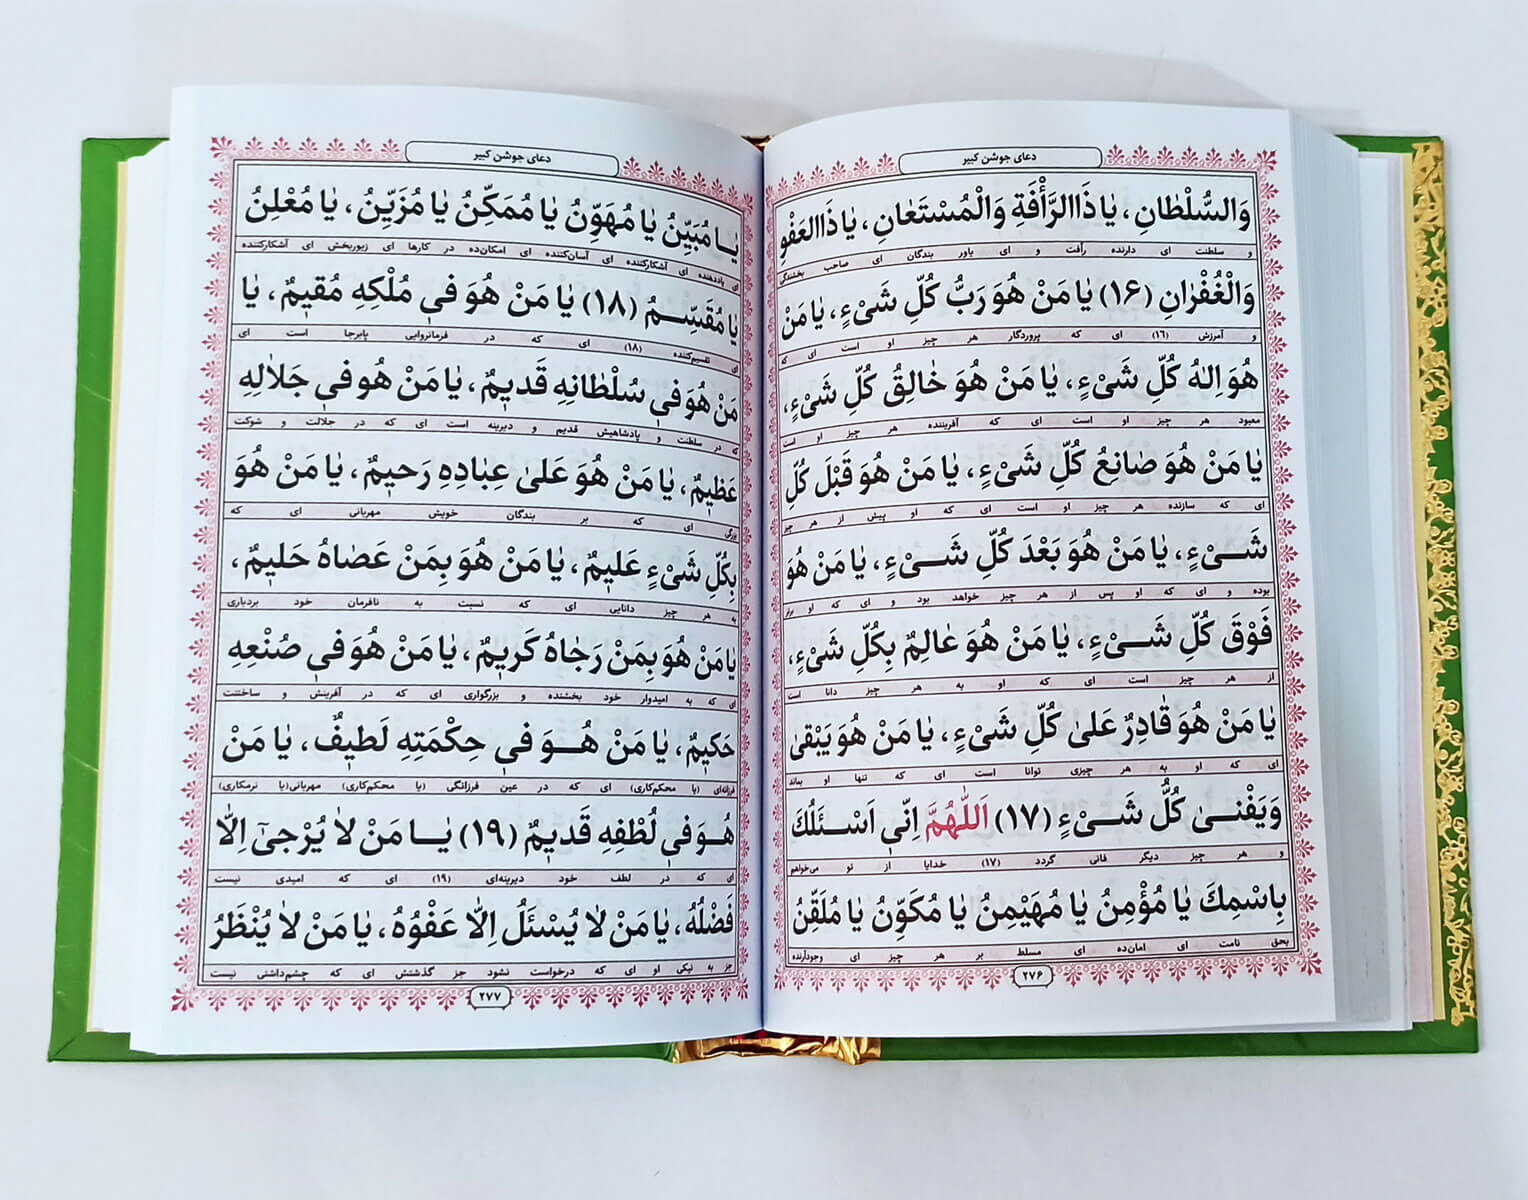 دعای جوشن کبیر
وَالسُّلْطانِ، یا ذَاالرَّأْفَةِ وَالْمُسْتَعانِ، یا ذَاالعَفْوِ
و سلطنت ای دارنده رأفت و ای یاور بندگان ای صاحب بخشندگی
وَالْغُفْرانِ (۱۶) یا مَنْ هُوَ رَبُّ کُلِّ شَیْءٍ، یا مَنْ
و آمرزش (۱۶) ای که پروردگار هر چیز او است ای که
هُوَ اِلهُ کُلِّ شَیْءٍ، یا مَنْ هُوَ خالِقُ کُلِّ شَیْءٍ،
معبود هر چیز او است ای که آفریننده هر چیز او است
یا مَنْ هُوَ صانِعُ کُلِّ شَیْءٍ، یا مَنْ هُوَ قَبْلَ کُلِّ
ای که سازنده هر چیز او است ای که او پیش از هر چیز
شَیْءٍ، یا مَنْ هُوَ بَعْدَ کُلِّ شَیْءٍ، یا مَنْ هُوَ
بوده و ای که او پس از هر چیز خواهد بود و ای که او برتر
فَوْقَ کُلِّ شَیْءٍ، یا مَنْ هُوَ عالِمٌ بِکُلِّ شَیْءٍ،
از هر چیز است ای که او به هر چیز دانا است
یا مَنْ هُوَ قادِرٌ عَلیٰ کُلِّ شَیْءٍ، یا مَنْ هُوَ یَبْقیٰ
ای که او به هر چیزی توانا است ای که تنها او بماند
وَیَفْنیٰ کُلُّ شَیْءٍ (۱۷) اَللّٰهُمَّ اِنّی اَسْئَلُكَ
و هر چیز دیگر فانی گردد (۱۷) خدایا از تو می‌خواهم
بِاسْمِكَ یا مُؤْمِنُ یا مُهَیْمِنُ یا مُکَوِّنُ یا مُلَقِّنُ
بحق نامت ای امان‌ده ای مسلط بر هر چیز ای وجودآرنده
۲۷۶
دعای جوشن کبیر
یا مُبَیِّنُ یا مُهَوِّنُ یا مُمَکِّنُ یا مُزَیِّنُ، یا مُعْلِنُ
ای یاددهنده ای آشکارکننده ای آسان‌کننده ای امکان‌ده در کارها ای زیوربخش ای آشکارکننده
یا مُقَسِّمُ (۱۸) یا مَنْ هُوَ فی مُلْکِهِ مُقیمٌ، یا
ای تقسیم‌کننده (۱۸) ای که در فرمانروایی پابرجا است ای
مَنْ هُوَ فی سُلْطانِهِ قَدیمٌ، یا مَنْ هُو فی جَلالِهِ
که در سلطنت و پادشاهیش قدیم و دیرینه است ای که در جلالت و شوکت
عَظیمٌ، یا مَنْ هُوَ عَلیٰ عِبادِهِ رَحیمٌ، یا مَنْ هُوَ
بزرگی ای که بر بندگان خویش مهربانی ای که
بِکُلِّ شَیْءٍ عَلیمٌ، یا مَنْ هُوَ بِمَنْ عَصاهُ حَلیمٌ،
به هر چیز دانایی ای که نسبت به نافرمان خود بردباری
یا مَنْ هُوَ بِمَنْ رَجاهُ کَریمٌ، یا مَنْ هُوَ فی صُنْعِهِ
ای که به امیدوار خود بخشنده و بزرگواری ای که در آفرینش و ساختنت
حَکیمٌ، یا مَنْ هُوَ فی حِکْمَتِهِ لَطیفٌ، یا مَنْ
فرزانه‌ای (یا محکم‌کاری) ای که در عین فرزانگی (یا محکم‌کاری) مهربانی(یا نرمکاری)
هُوَ فی لُطْفِهِ قَدیمٌ (۱۹) یا مَنْ لا یُرْجیٰٓ اِلّا
ای که در لطف خود دیرینه‌ای (۱۹) ای که امیدی نیست
فَضْلُهُ، یا مَنْ لا یُسْئَلُ اِلّا عَفْوُهُ، یا مَنْ لا یُنْظَرُ
جز به نیکی او ای که درخواست نشود جز گذشتش ای که چشم‌داشتی نیست
۲۷۷